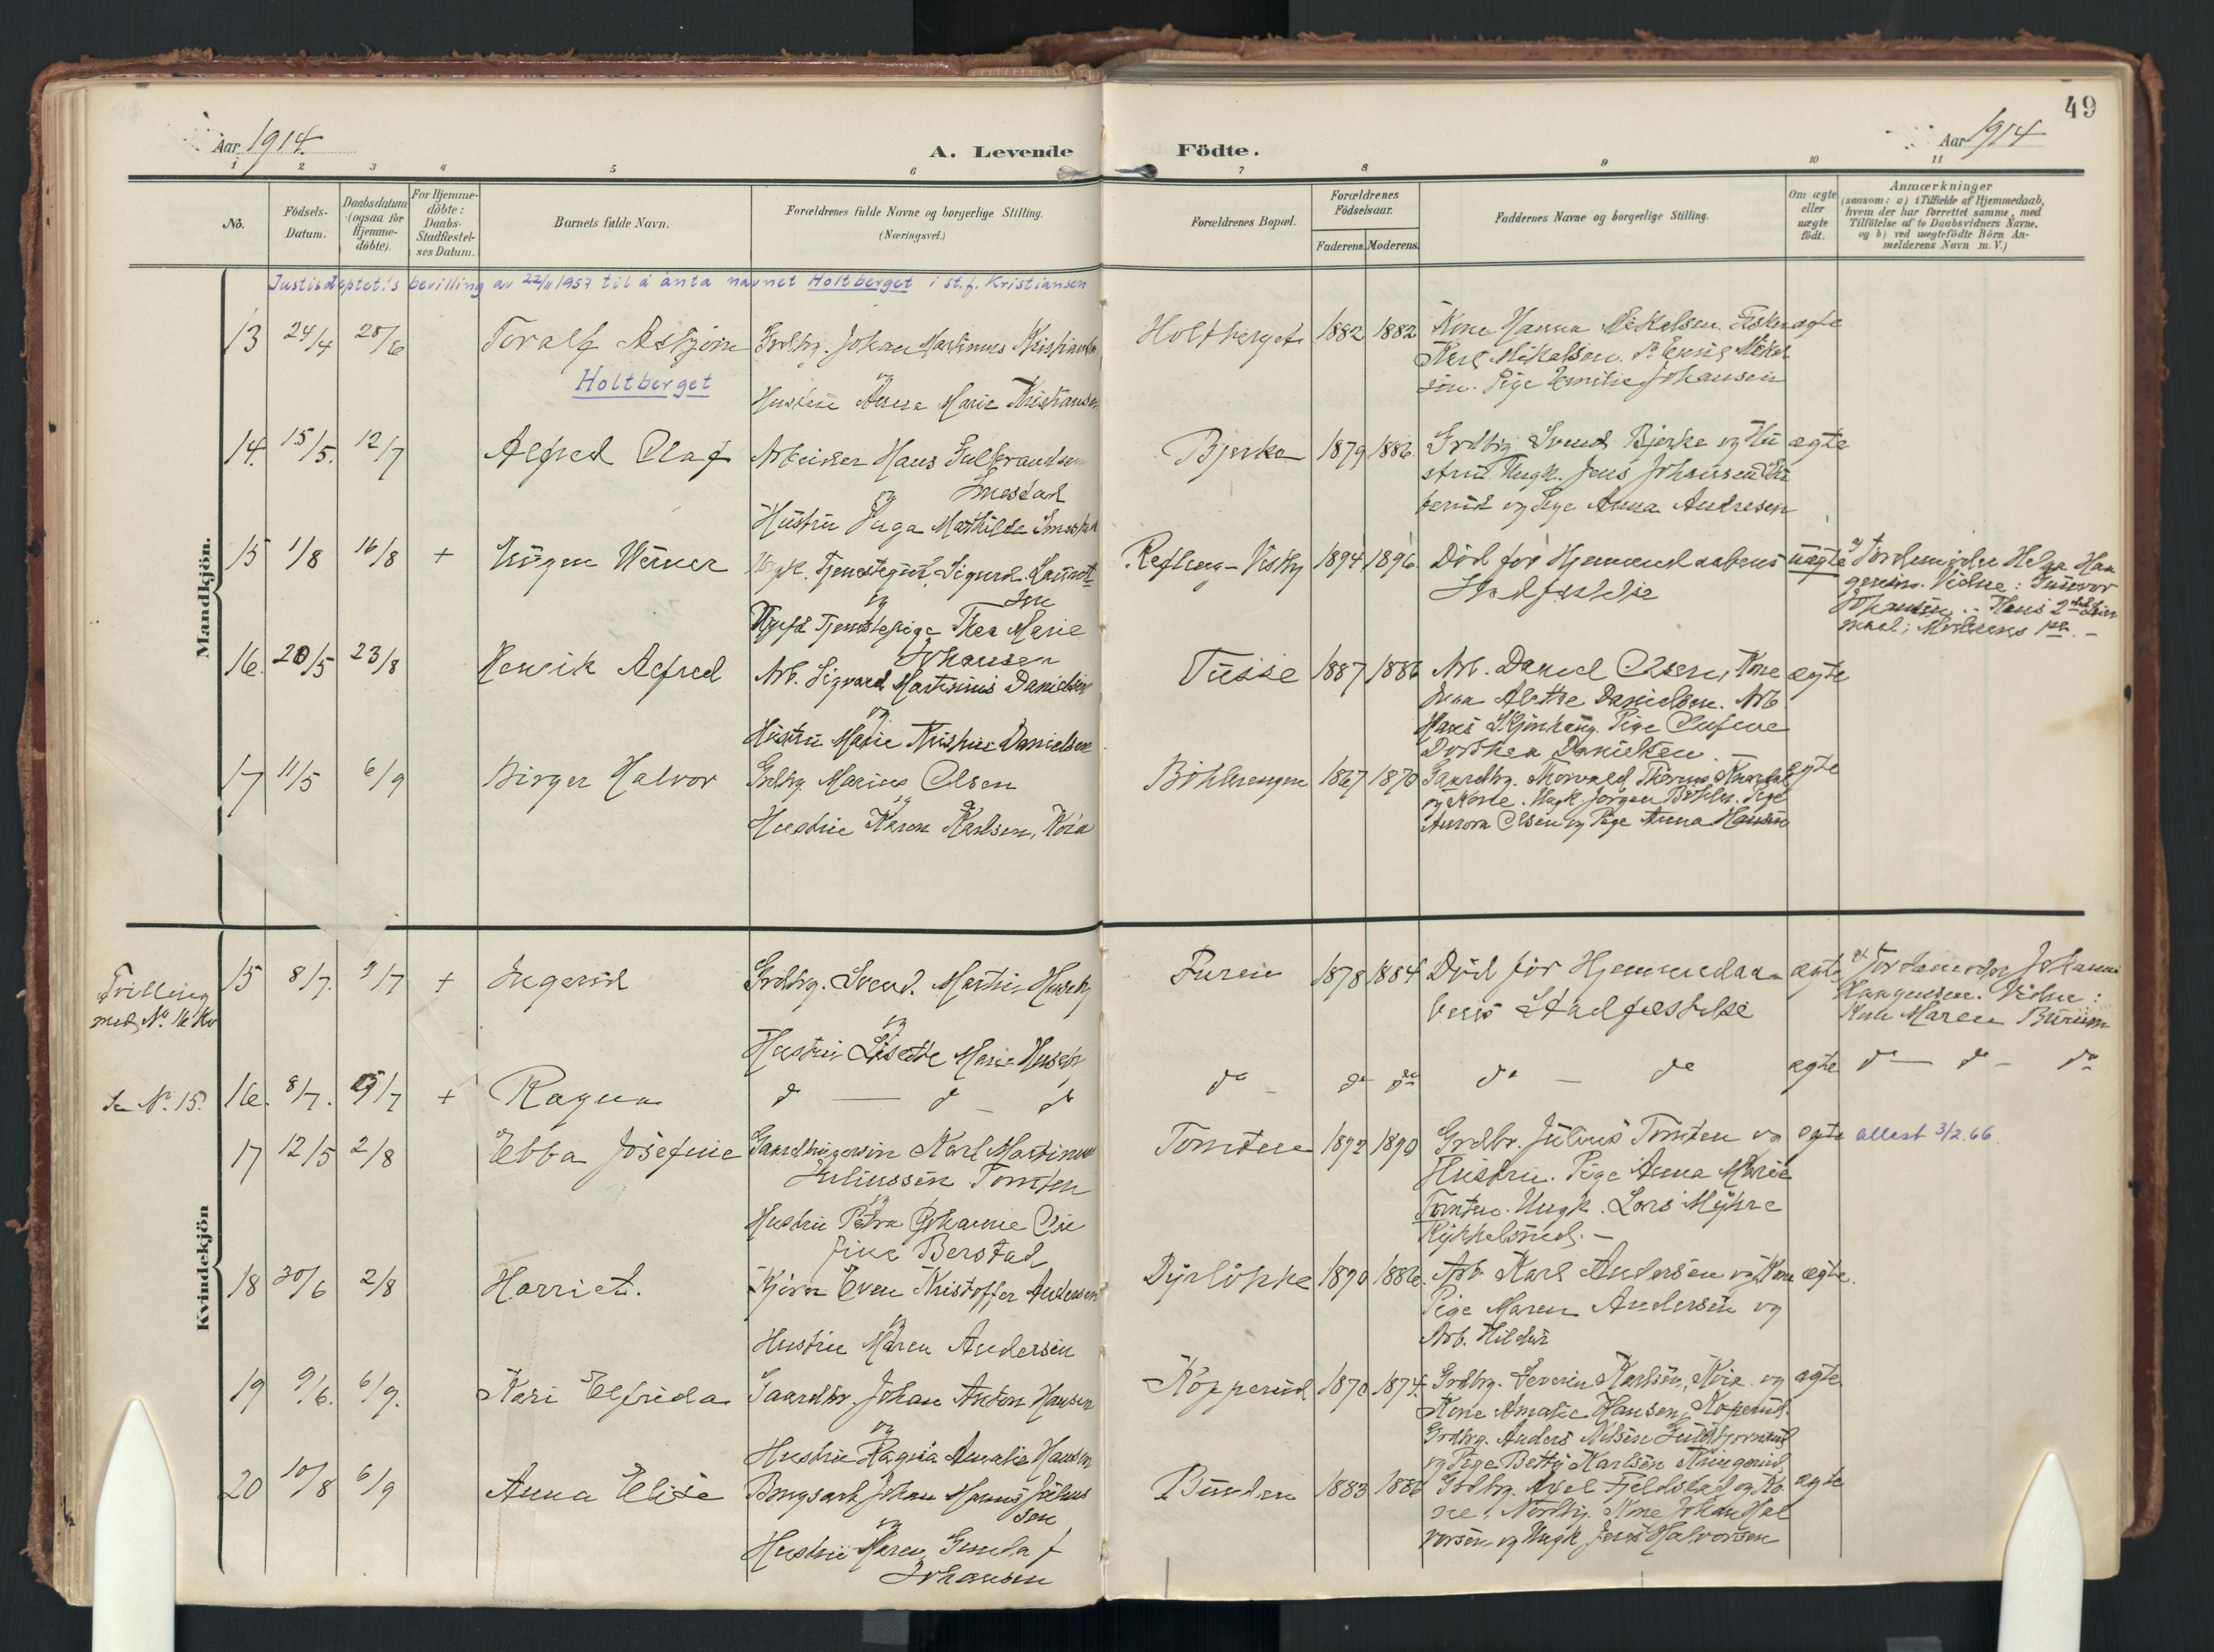 49
Aar 1914.
A. Levende
Födte.
Aar 1914
1 2 3 4 5 6 7 8 9 10 11
No.
Födsels-Datum.
Daabsdatum (ogsaa for Hjemme-döbte).
For Hjemme-döbte: Daabs-Stadfæstel-ses Datum.
Barnets fulde Navn.
Forældrenes fulde Navne og borgerlige Stilling. (Næringsvei.)
Forældrenes Bopæl.
Forældrenes Födselsaar.
Faderens. Moderens.
Faddernes Navne og borgerlige Stilling.
Om ægte eller uægte födt.
Anmærkninger
(saasom: a) i Tilfælde af Hjemmedaab,
hvem der har forrettet samme, med
Tilföielse af to Daabsvidners Navne,
og b) ved uægtefödte Börn An-
melderens Navn m. V.)
Justisdeptet's bevilling av 22/11 1957 til å anta navnet Holtberget i st.f. Kristiansen
Mandkjön.
13 24/4 28/6 Toralf Asbjörn Grdbr. Johan Martinus Kristiansen Holtberget 1882 1882 Kone Hanna Mikalsen. Fisker ægte
Holtberget
Karl Mikalsen.
Pige Emilie Johansen
og
Hustru Anna Marie Kristiansen
14. 15/5. 12/7 Alfred Olaf Arbeider Hans Gulbrandsen Bjerke 1879 1886. Grdbr. Svend Bjerke og Hu ægte
Smestad
stru. Ungk. Jens Johansen
og
og Pige Anna Andresen
Hustru Inga Mathilde Smestad
15 1/8 16/8 + Eugen Werner Ungk. Tjenestegut Sigurd Refling-Vestby 1894 1896. Död för Hjemmedaabens uægte Jordemoder Helga Haa
Stadfæstelse
gensen. Vidne: Gunvor
og
Ugift Tjenestepige Thea Marie
Johansen
Johansen.
16. 20/5 23/8 Henrik Alfred Arb. Sigvard Martinius Danielsen Tusse 1887 1886 Arb. Daniel Olsen, Kone ægte
Danielsen. Arb.
og
Hans Pige
Hustru Marie Danielsen
Dorthea Danielsen.
17 11/5 6/9 Birger Halvor Grdbr. Marius Olsen Böhlerengen 1867 1870 Gaardbr. Thorvald ægte
og
og Kone. Ungk. Jörgen Böhler. Pige
Hustru Karen Karlsen, Kria
Aurora Olsen og Pige Anna Hansen
Kvindekjön
Tvilling
med No. 16 Kv
15 8/7. 9/7 + Ingerid Grdbr. Svend Martin Huseby Furin 1878 1884 Död för Hjemmedaa- ægte Jordemoder Johanne
bens Stadfæstelse
Haagensen. Vidne:
Maren Burum
og
Hustru Lisette Marie Huseby
Se No. 15.
16. 8/7. 9/7 + Ragna do — do — do do — do do do — do ægte do — do — do
17 12/5 2/8 Ebba Josefine Gaardbrugersön Karl Martinus Tomten 1892 1890 Grdbr. Julius Tomten og ægte attest 3/2.66.
Juliussen Tomten
Hustru. Pige Anna Marie
og
Tomten. Ungk. Lars Myhre
Hustru Petra Johanne Ose
Rykkelsrud. —
fine Berstad
18 30/6 2/8 Harriet. Kjörer Even Kristoffer Andersen Dyrlökke 1890 1886. Arb. Karl Andersen og Kone ægte.
Pige Maren Andersen og
og
Arb. Hildur
Hustru Maren Andersen
19 9/6. 6/9. Kari Elfrida Gaardbr. Johan Anton Hansen Kopperud 1870 1874. Grdbr. Severin Karlsen, Kria og ægte.
Kone Amalie Hansen, Koperud.
og
Grdbr. Anders Nilsen
Hustru Ragna Amalie Hansen
og Pige Betty Karlsen Kringerud
20 10/8 6/9 Anna Elise Johan Magnus Julius Bunden 1883 1886 Grdbr. Axel Fjeldstad og Ko ægte
sen
ne, Nordby. Kone Johan Hal
og
vorsen og Ungk. Jens Halvorsen
Hustru Maren Gunda f
Johansen